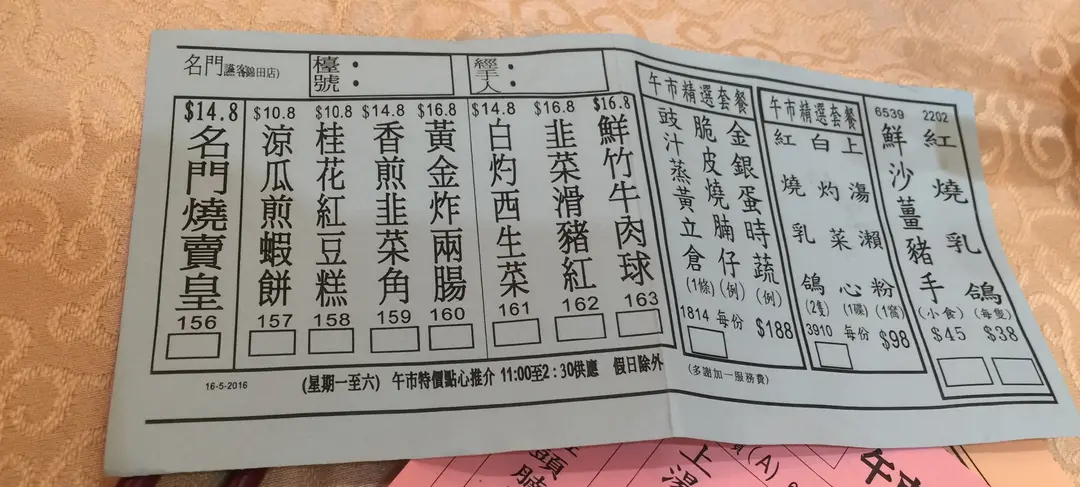 名門(讌客鷄田店)
檯號：
經手人：
$14.8
名門燒賣皇
156
$10.8
涼瓜煎蝦餅
157
$10.8
桂花紅豆糕
158
$14.8
香煎韭菜角
159
$16.8
黃金炸兩腸
160
$14.8
白灼西生菜
161
$16.8
韭菜滑豬紅
162
$16.8
鮮竹牛肉球
163
午市精選套餐
豉汁蒸黃立倉(1條)
脆皮燒腩仔(例)
金銀蛋時蔬(例)
1814 每份 $188
午市精選套餐
紅燒乳鴿(2隻)
白灼菜心(1碟)
上湯瀨粉(1窩)
3910 每份 $98
6539
鮮沙薑豬手
(小食)
$45
2202
紅燒乳鴿
(每隻)
$38
16-5-2016
(星期一至六) 午市特價點心推介 11:00至2:30供應 假日除外
(多謝加一服務費)
上湯
(A)
午市